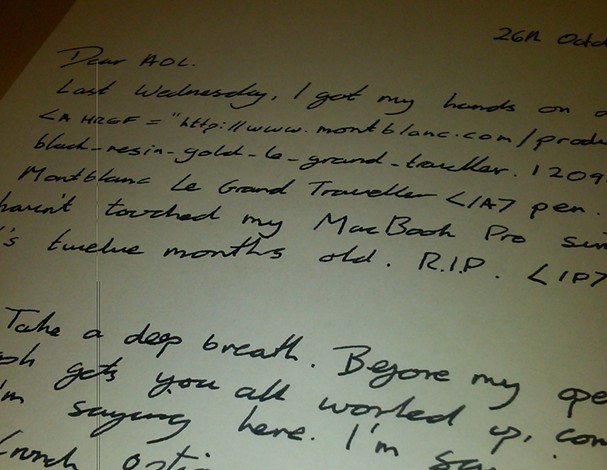 26th Octo
Dear AOL.
Last Wednesday, I got my hands on a
<A HREF = "http://www.montblanc.com/produ
black-resin-gold-le-grand-traveller.1209
Montblanc Le Grand Traveller </A> pen.
haven't touched my MacBook Pro sin
's twelve months old. R.I.P. </P>
Take a deep breath. Before my ope
gets you all worked up, con
'm saying here. I'm sa
Crunch